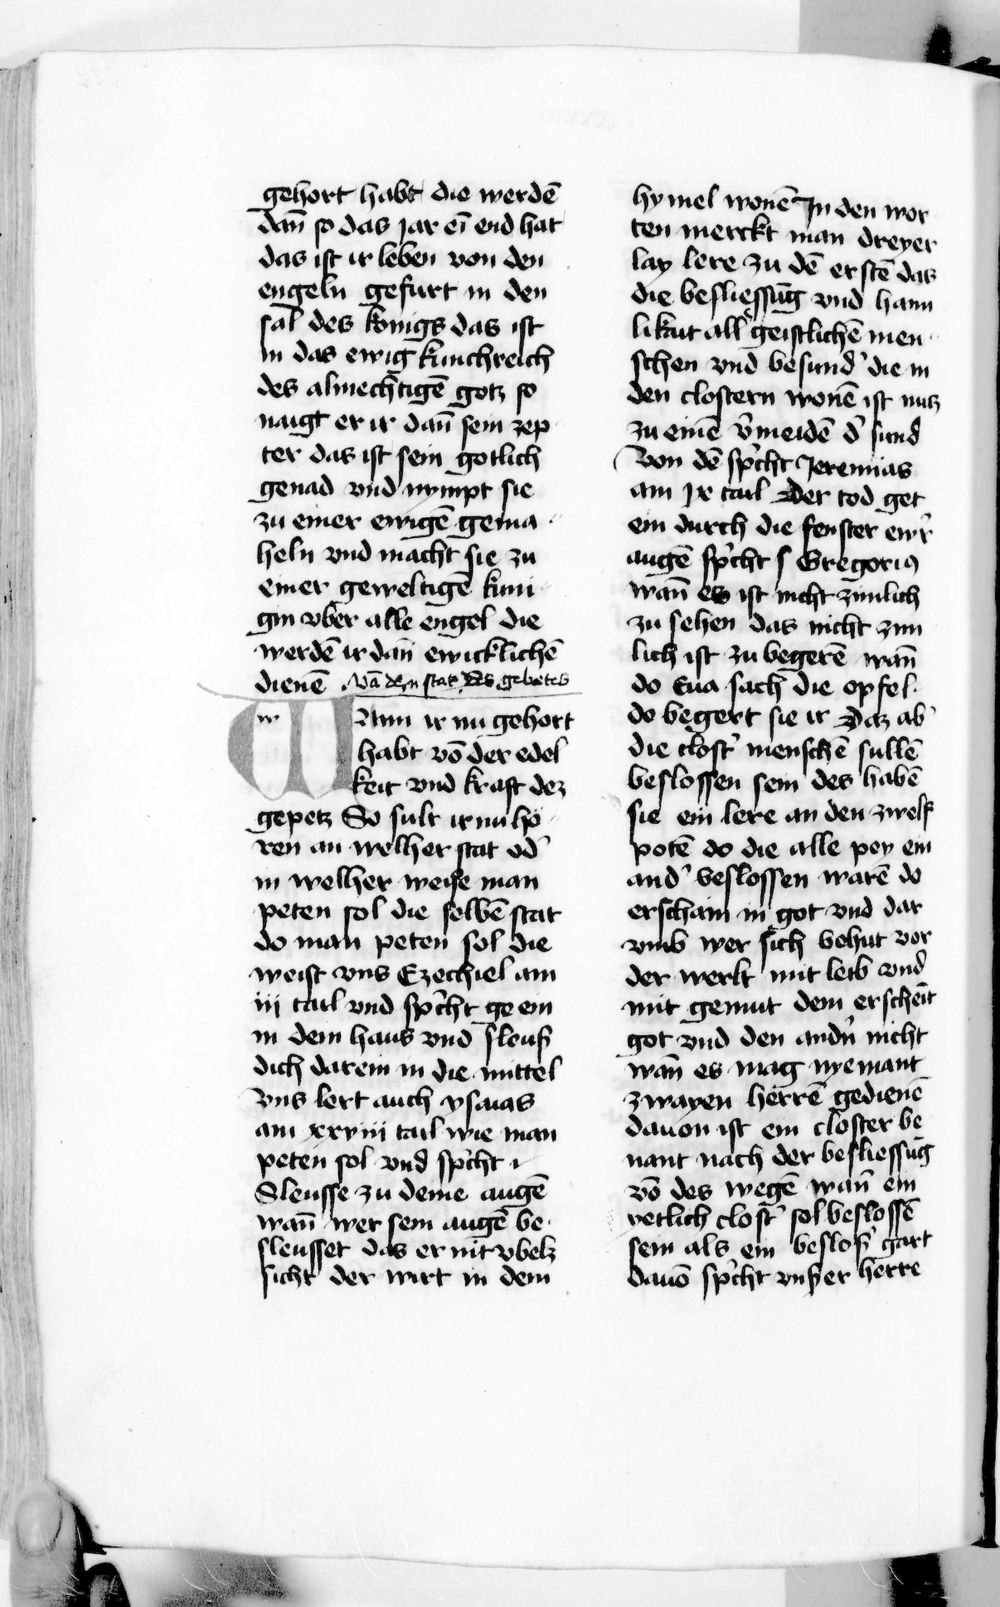 gehort habt die werdē
dan̄ so das jar eī end hat
das ist ir leben von den
engeln gefurt in den
sal des konigs das ist
in das ewig kunchreich
des almechtigē gotz so
naigt er ir dan̄ sein zep
ter das ist sein gotlich
genad vnd nympt sie
zu einer ewigē gema
heln vnd macht sie zu
einer geweltigē kuni
gin vber alle engel die
werdē ir dan̄ ewicklichē
dienē Vā dem stat des gebetes
Wann ir nu gehort
habt vō der edel
keit vnd kraft dez
gepetz So sult ir nu ho
ren an welher stat od̓
in welher weise man
peten sol die selbē stat
do man peten sol die
weist vns Ezechiel am
iij tail vnd sp̓cht ge ein
in dem haus vnd sleuß
dich darein in die mittel
Vns lert auch ysaias
am xxviii tail wie man
peten sol vnd sp̓cht
Sleusse zu deine augē
wan̄ wer sein augē be
sleusset das er nit vbelz
sicht der wirt in dem
hymel wonē In den wor
ten merckt man dreyer
lay lere zu dē erstē das
die besliessūg vnd haim
likait all̓ geistlichē men
schen vnd besund̓ die in
den clostern wonē ist nutz
zu einē v̓meidē d̓ sund
Von dē sp̓cht Jeremias
am ix tail Der tod get
ein durch die fenster ewr̓
augē sp̓cht s Gregori9
wan̄ es ist nicht zimlich
zu sehen das nicht zim
lich ist zu begerē wan̄
do Eua sach die opfel
do begert sie ir Daz ab̓
die clost̓ menschē sullē
beslossen sein des habē
sie ein lere an den zwelf
potē do die alle pey ein
and̓ beslossen warē do
erscham in got vnd dar
vmb wer sich behut vor
der werlt mit leib vnd
mit gemut dem erscheīt
got vnd den andn̓ nicht
wan̄ es mag nyemant
zwayen herrē gedienē
dauon ist ein closter be
nant nach der besliessūg
vō des wegē wan̄ ein
yetlich clost̓ sol beslossē
sein als ein besloß̓ gart
dauō sp̓cht vnßer herre